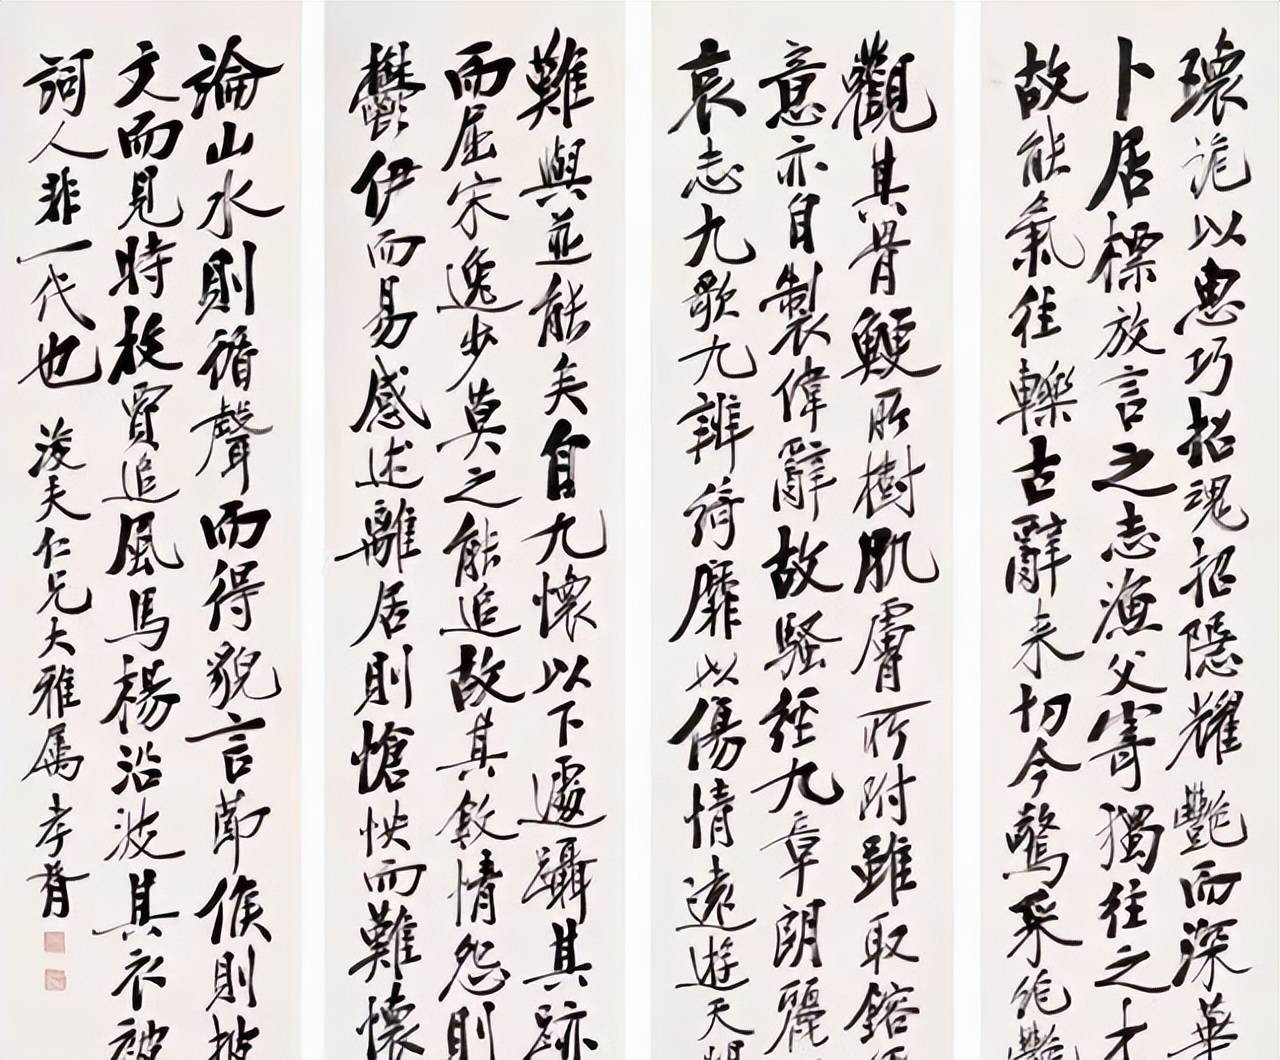 瓌詭以惠巧招魂招隱耀艷而深華
卜居標放言之志漁父寄獨往之才
故能氣往轢古辭來切今驚采絕艷
觀其骨鯁所樹肌膚所附雖取鎔
意亦自製偉辭故騷經九章朗麗
哀志九歌九辨綺靡以傷情遠遊天
難與並能矣自九懷以下遽躡其跡
而屈宋逸步莫之能追故其敘情怨則
鬱伊而易感述離居則愴怏而難懷
論山水則循聲而得貌言節候則披
文而見時枚賈追風馬楊沿波其衣被
詞人非一代也 淩夫仁兄大雅屬 孝胥